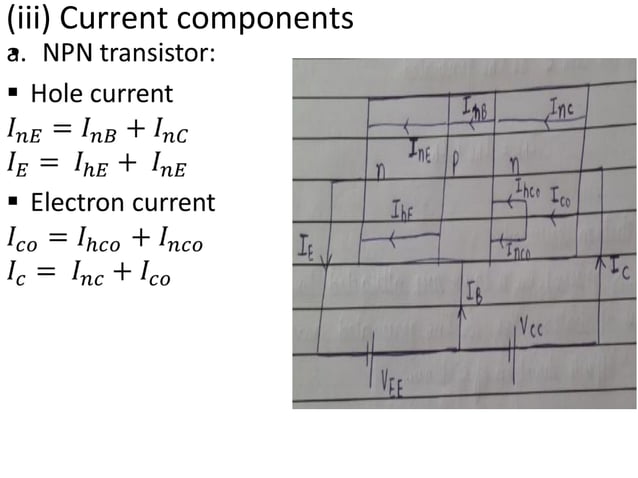 (iii) Current components
a. NPN transistor:
▪ Hole current
I_nE = I_nB + I_nC
I_E = I_hE + I_nE
▪ Electron current
I_co = I_hco + I_nco
I_c = I_nc + I_co
I_nB
I_nc
I_nE
n
P
n
I_hco
I_co
I_hE
I_nco
I_E
I_C
I_B
V_CC
V_EE